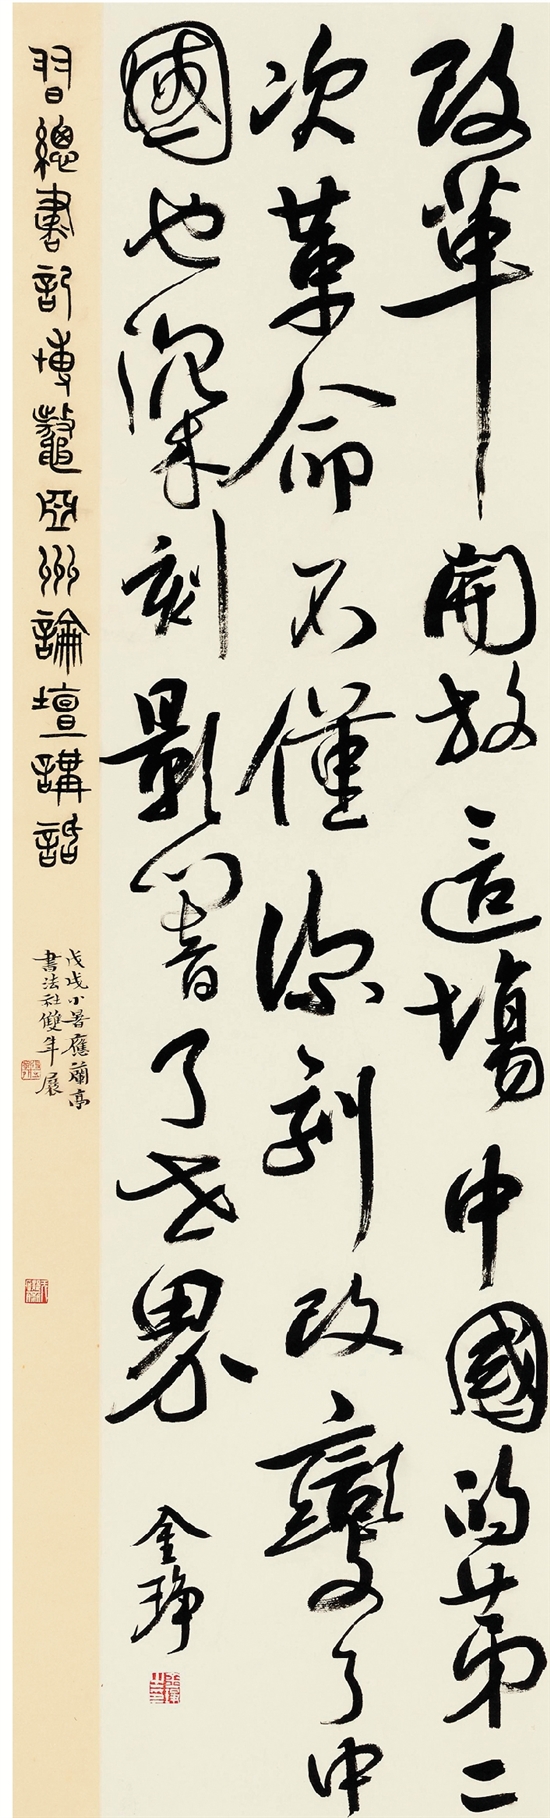 改革開放這場中國的第二
次革命不僅深刻改變了中
國也深刻影響了世界
金琤
習總書記博鼇亞州論壇講話
戊戌小暑應蘭亭
書法社雙年展